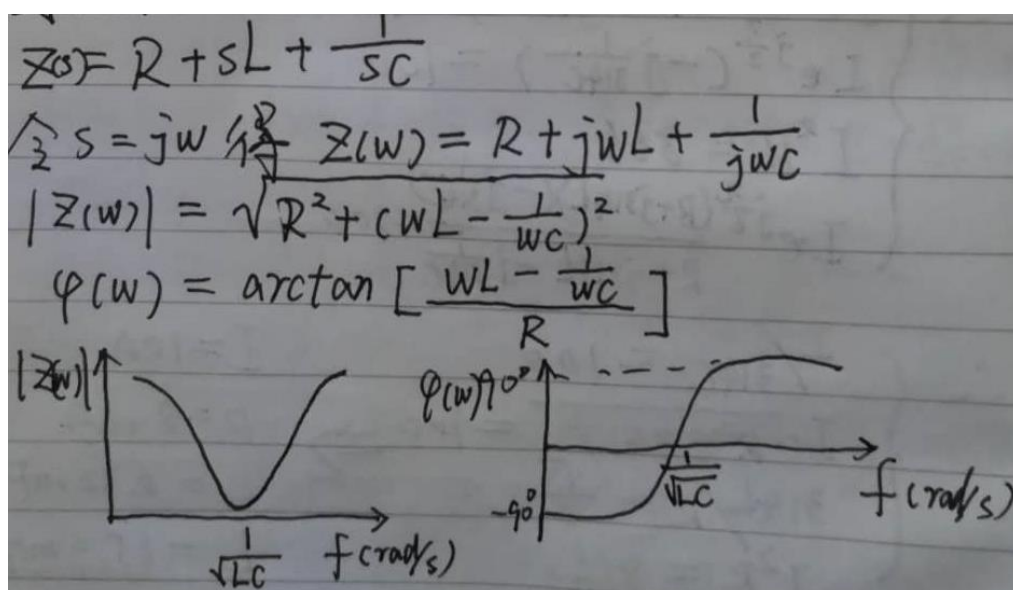 Z(s)= R + sL + \frac{1}{sC}
令 s = jw 得 Z(w) = R + jwL + \frac{1}{jwC}
|Z(w)| = \sqrt{R^2 + (wL - \frac{1}{wC})^2}
φ(w) = arctan [ \frac{wL - \frac{1}{wC}}{R} ]
|Z(w)|
\frac{1}{\sqrt{LC}} f(rad/s)
φ(w) 90°
-90°
\frac{1}{\sqrt{LC}}
f(rad/s)